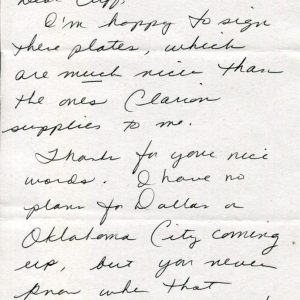 Dear Cliff,
I'm happy to sign
these plates, which
are much nicer than
the ones Clarion
supplies to me.
Thanks for your nice
words. I have no
plans for Dallas or
Oklahoma City coming
up, but you never
know when that